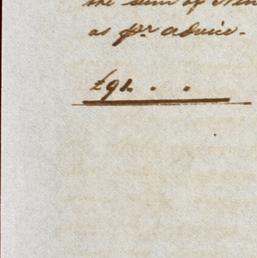 the sum of
as pr advice.
£91. . .